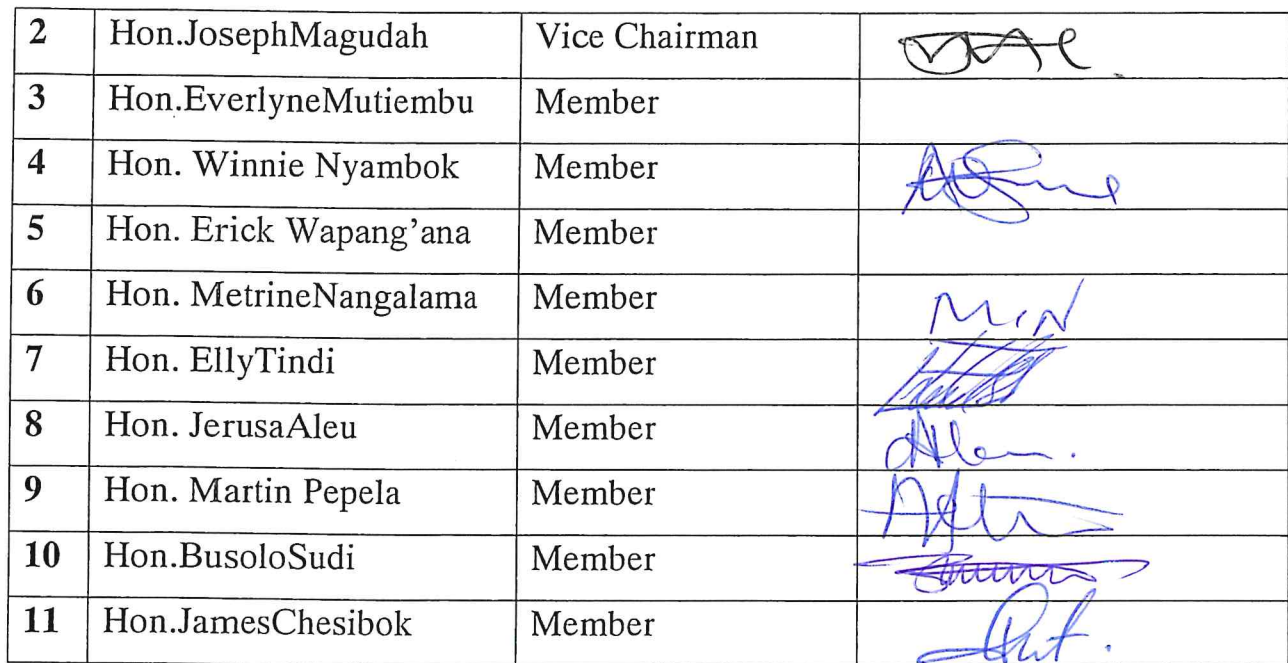 2 Hon.JosephMagudah Vice Chairman
3 Hon.EverlyneMutiembu Member
4 Hon. Winnie Nyambok Member
5 Hon. Erick Wapang’ana Member
6 Hon. MetrineNangalama Member M.N
7 Hon. EllyTindi Member
8 Hon. JerusaAleu Member
9 Hon. Martin Pepela Member
10 Hon.BusoloSudi Member
11 Hon.JamesChesibok Member